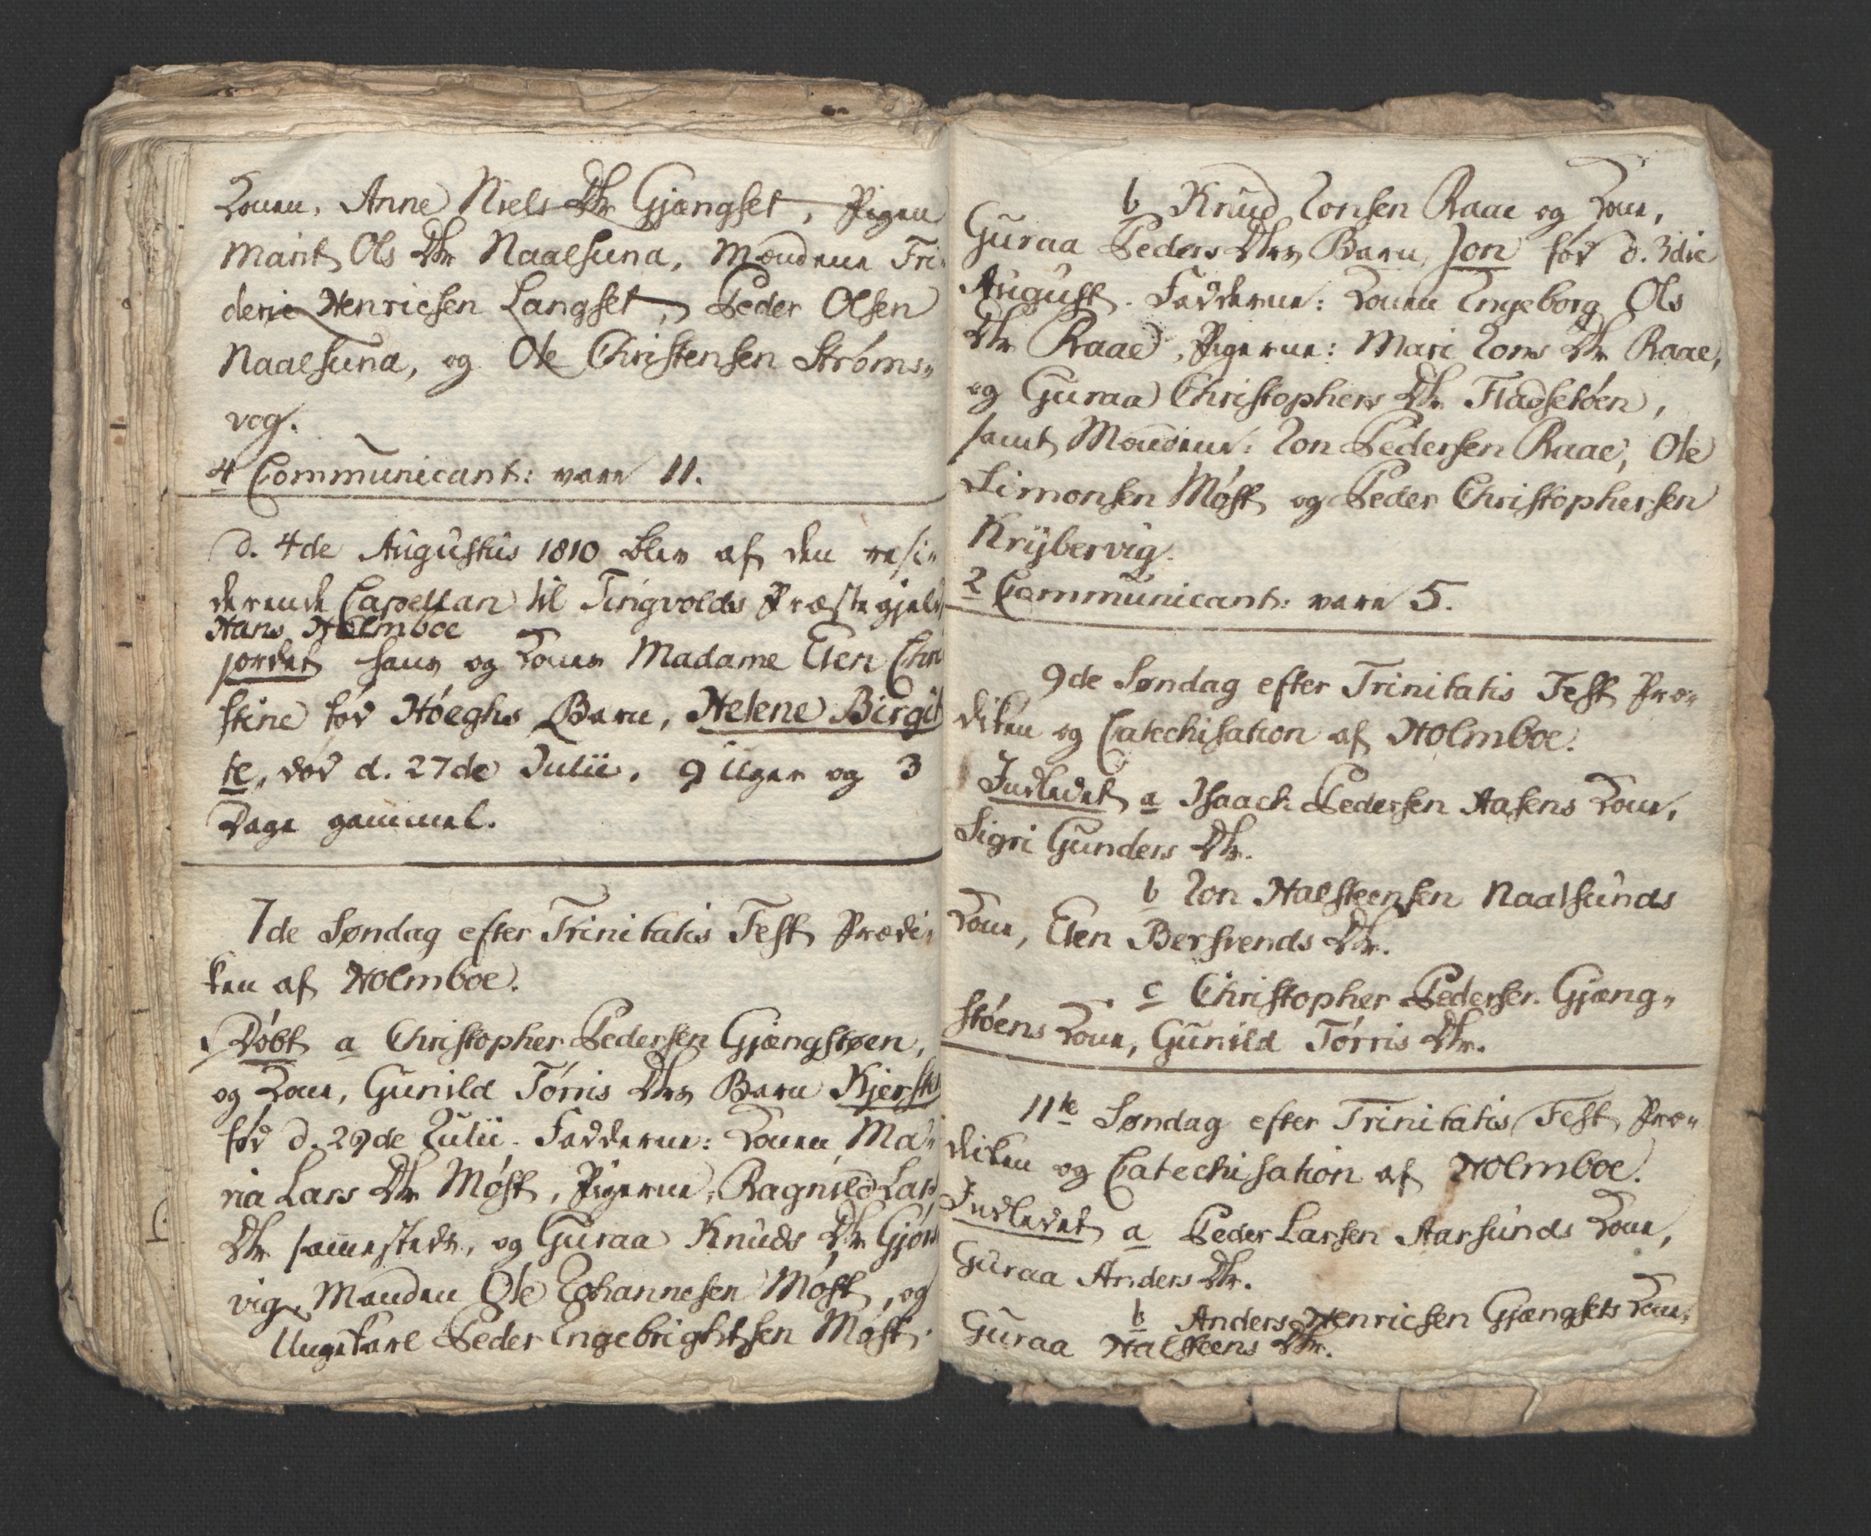 Konen, Anne Niels Dtr Gjængset, Pigen
Marit Ols Dtr Naalsuna, Mændene Fri-
deric Henricsen Langset, Peder Olsen
Naalsuna, og Ole Christensen Strøms-
vog.
4 Communicant: vare 11.
d. 4de Augustus 1810 blev af den resi-
derende Capellan til Tingvolds Præstegjeld
Hans Holmboe
jordet hans og Kones Madame Elen Chri
stine fød Höeghs Barn, Helene Birgit
te, død d. 27de Julii, 9 Uger og 3
Dage gammel.
7de Søndag efter Trinitatis Fest Prædi-
ken af Holmboe.
Døbt a Christopher Pedersen Gjængstøen,
og Kone, Gunild Törris Dtrs Barn Kjersti
fød d. 29de Julii. Fadderne: Konen Ma-
ria Lars Dtr Möst, Pigerne, Ragnild Lars
Dtr sammesteds, og Guraa Knuds Dtr Gjørs
vig, Manden Ole Johannesen Möst, og
Ungekarl Peder Engebrightsen Möst.
b Knud Jonsen Raae og Kone,
Guraa Peders Dtrs Barn Jon fød d. 3die
August. Fadderne: Konen Engeborg Ols
Dtr Raae, Pigerne: Mari Jons Dtr Raae,
og Guraa Christophers Dtr Fladsetöen,
samt Mændene: Jon Pedersen Raae, Ole
Simonsen Möst og Peder Christophersen
Krÿbervig.
2 Communicant: vare 5.
9de Søndag efter Trinitatis Fest Præ-
diken og Catechisation af Holmboe.
Indledet a Isaach Pedersen Aasens Kone,
Sigri Gunders Dtr.
b Jon Halsteensen Naalsunds
Kone, Elen Bersvends Dtr.
c Christopher Pedersen Gjæng-
stöens Kone, Gunild Törris Dtr.
11te Søndag efter Trinitatis Fest Præ-
diken og Catechisation af Holmboe.
Indledet a Peder Larsen Aarsunds Kone,
Guraa Anders Dtr.
b Anders Henricsen Gjængsets Kone,
Guraa Halsteens Dtr.